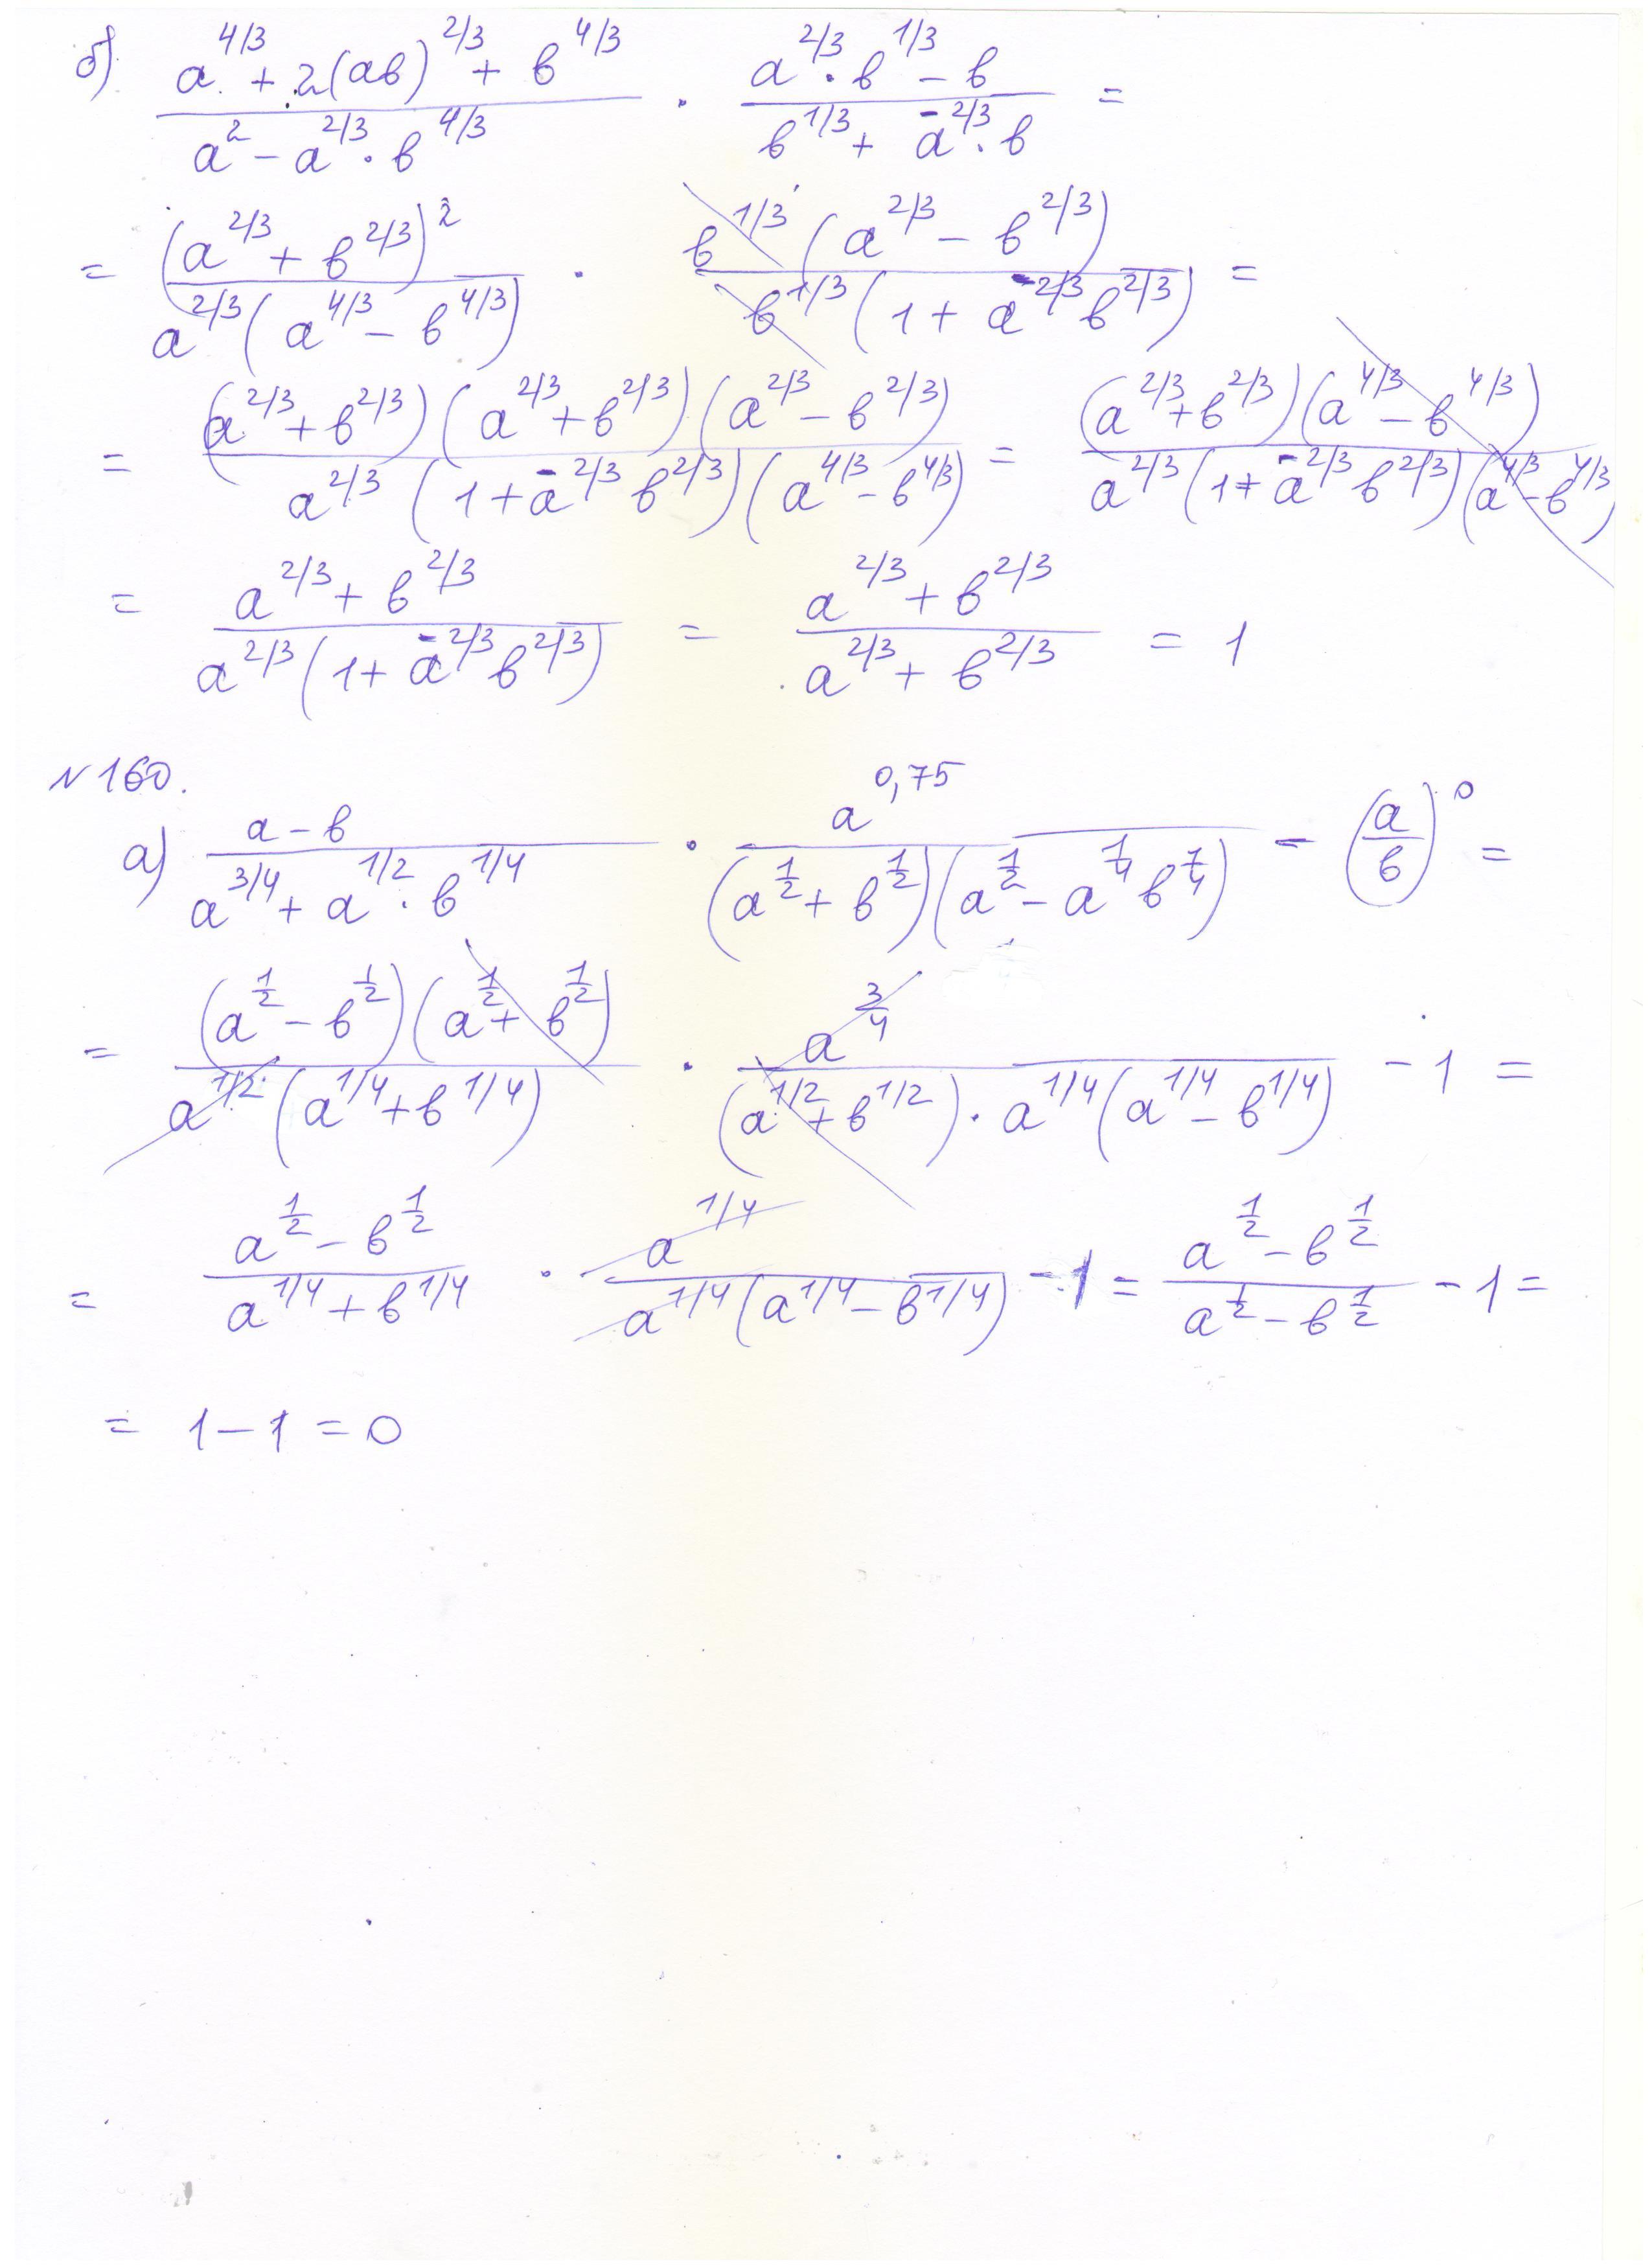 б) (a^{4/3} + 2(ab)^{2/3} + b^{4/3}) / (a^2 - a^{2/3} · b^{4/3}) · (a^{2/3} · b^{1/3} - b) / (b^{1/3} + a^{-2/3} · b) =
= (a^{2/3} + b^{2/3})^2 / (a^{2/3}(a^{4/3} - b^{4/3})) · b^{1/3}(a^{2/3} - b^{2/3}) / (b^{1/3}(1 + a^{-2/3} b^{2/3})) =
= (a^{2/3} + b^{2/3})(a^{2/3} + b^{2/3})(a^{2/3} - b^{2/3}) / (a^{2/3}(1 + a^{-2/3} b^{2/3})(a^{4/3} - b^{4/3})) = (a^{2/3} + b^{2/3})(a^{4/3} - b^{4/3}) / (a^{2/3}(1 + a^{-2/3} b^{2/3})(a^{4/3} - b^{4/3}))
= (a^{2/3} + b^{2/3}) / (a^{2/3}(1 + a^{-2/3} b^{2/3})) = (a^{2/3} + b^{2/3}) / (a^{2/3} + b^{2/3}) = 1
N160.
а) (a - b) / (a^{3/4} + a^{1/2} · b^{1/4}) · a^{0,75} / ((a^{1/2} + b^{1/2})(a^{1/2} - a^{1/4} b^{1/4})) - (a/b)^0 =
= (a^{1/2} - b^{1/2})(a^{1/2} + b^{1/2}) / (a^{1/2}(a^{1/4} + b^{1/4})) · a^{3/4} / ((a^{1/2} + b^{1/2}) · a^{1/4}(a^{1/4} - b^{1/4})) - 1 =
= (a^{1/2} - b^{1/2}) / (a^{1/4} + b^{1/4}) · a^{1/4} / (a^{1/4}(a^{1/4} - b^{1/4})) - 1 = (a^{1/2} - b^{1/2}) / (a^{1/2} - b^{1/2}) - 1 =
= 1 - 1 = 0